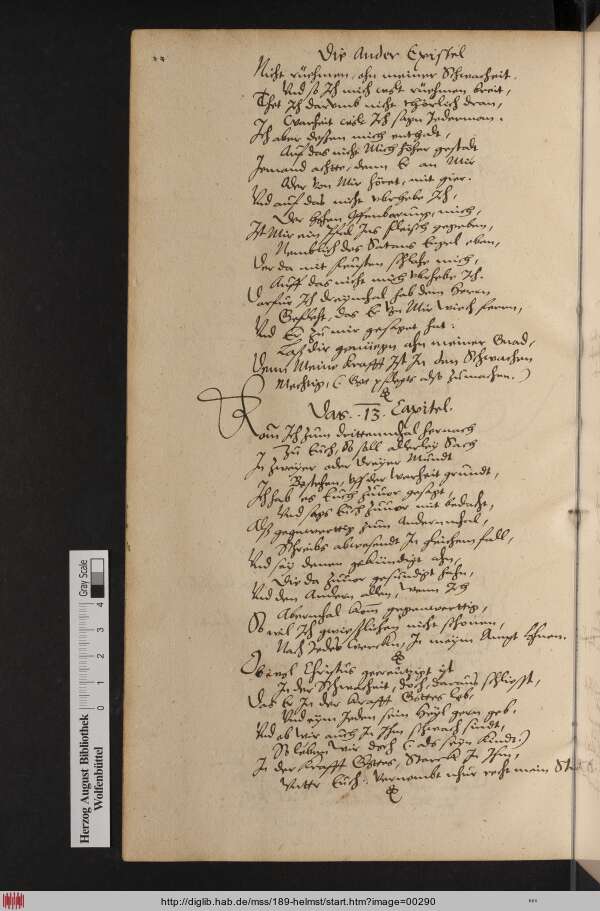 Die Ander Epistel
Nicht rüehmen, ohn meiner Schwacheit.
Und so Ich mich ruehmen breit,
Thet Ich darumb nicht thörlich dran,
In warheit wolt Ich sagn Jederman.
Ich aber deßen mich enthalt,
Auf das nicht Mich höher gestalt
Jemand achtte, denn Er an Mir
Oder von Mir höret, mit gier.
Und auf das nicht uberhebe Ich,
Der hohen offenbarung, mich,
Ist Mir ein Pfeil Ins fleisch gegeben,
Nemblich des Satans Engel eben,
Der da mit feusten schlahe mich,
Auff das nicht mich uberhebe Ich.
Darfür Ich dreymhal hab dem Herrn
Gefleht, das Er von Mir wiech ferrn,
Und Er zu mir gesaget hat:
Laß dir genüegen ahn meiner Gnad,
Denn Meine krafft Ist In den Schwachen
Mechtig, (Got pflegts also zumachen.)
Das .13. Capitel.
Kom Ich zum drittenmhal hernach
Zu Euch, So soll allerley Sach
In zweyer oder dreyer Mundt
Bestehen, uf der warheit grundt,
Ich hab es Euch zuuor gesagt,
Und sags Euch zuuor mit bedacht,
Alß gegenwerttig zum Andernmhal,
Schreibs abwesendt In gleichem fall,
Und sey denen gekündigt ahn,
Die da zuuor gesündigt hahn,
Und den Andern allen, wenn Ich
Abermhal kom gegenwerttig,
So wil Ich nicht schonen,
Nach Jedes wercken, In meym Ampt Ihnen.
Obwol Christus gecreutzigt ist
In der Schwacheit, doch, daraus schliest,
Das Er In der krafft Gottes leb,
Und eym Jeden sein Heyl gern geb.
Und ob wir auch In Ihm schwach sindt,
So leben wir doch (als seyn kindt.)
In der krafft Gottes, Starck In Ihm,
Untter Euch. vernembt nhur recht mein
Herzog August Bibliothek
Wolfenbüttel
0 1 2 3 4
Gray Scale
http://diglib.hab.de/mss/189-helmst/start.htm?image=00290